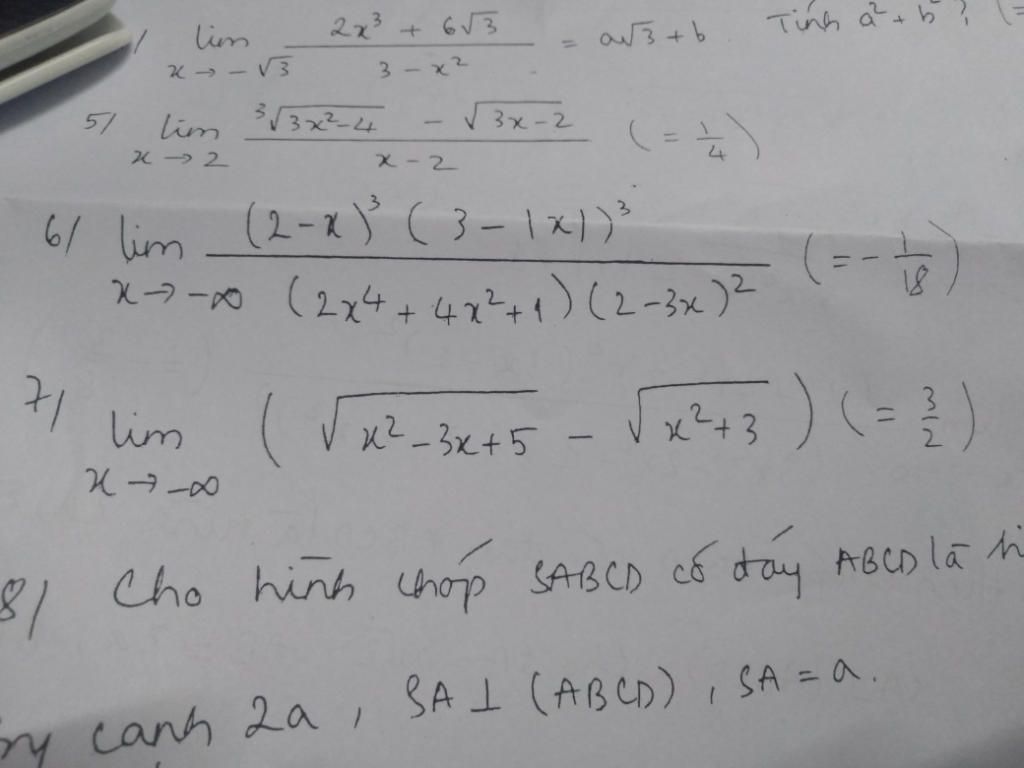 / lim x→-√3 (2x³ + 6√3)/(3 - x²) = a√3 + b. Tính a² + b²? (=
5/ lim x→2 (³√(3x²-4) - √(3x-2))/(x-2) (= 1/4)
6/ lim x→-∞ ((2-x)³(3-|x|)³)/((2x⁴+4x²+1)(2-3x)²) (= -1/18)
7/ lim x→-∞ (√(x²-3x+5) - √(x²+3)) (= 3/2)
8/ Cho hình chóp SABCD có đáy ABCD là
cạnh 2a, SA⊥(ABCD), SA = a.